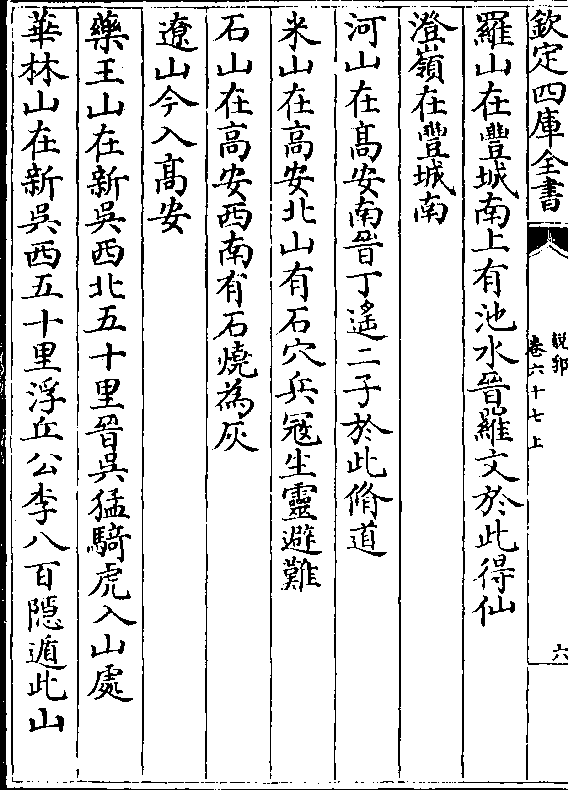 欽定四庫全書
說郛
卷六十七上
六
羅山在豐城南上有池水晉羅文於此得仙
澄嶺在豐城南
河山在髙安南晉丁遙二子於此脩道
米山在髙安北山有石穴兵冦生靈避難
石山在髙安西南有石燒為灰
遼山今入髙安
藥王山在新吳西北五十里晉吳猛騎虎入山處
華林山在新吳西五十里浮丘公李八百隱遁此山